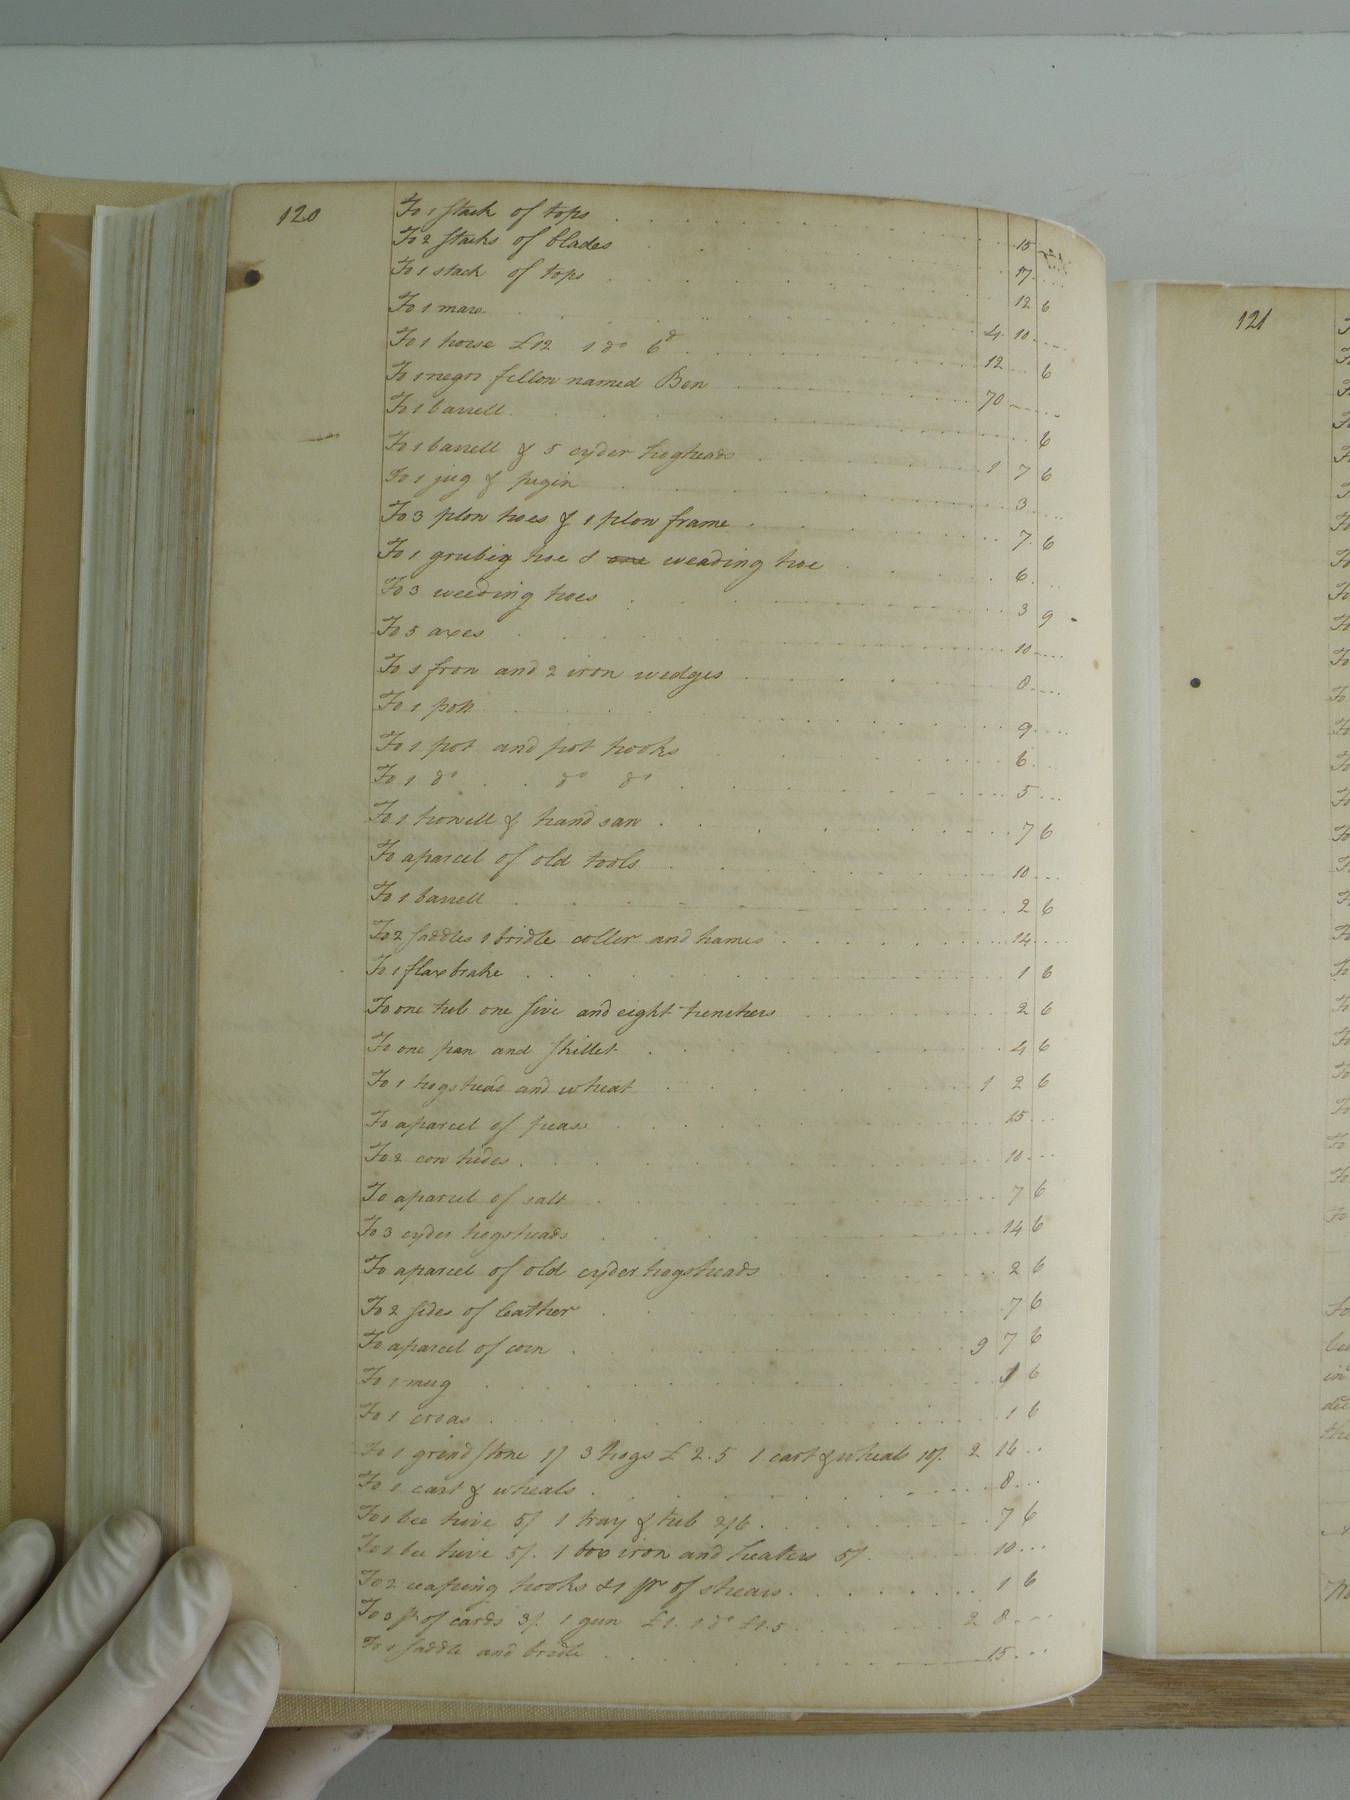 120
To 1 stack of tops 15
To 2 stacks of blades 17
To 1 stack of tops 12 6
To 1 mare 4 10
To 1 horse £12 1 do 6d 12 6
To 1 negro fellow named Ben 70
To 1 barrell 6
To 1 barrell & 5 cyder hogheads 1 7 6
To 1 jug & pigin 3
To 3 plow hoes & 1 plow frame 7 6
To 1 grubig hoe & one weading hoe 6
To 3 weeding hoes 3 9
To 5 axes 10
To 1 frow and 2 iron wedges 8
To 1 pott 9
To 1 pot and pot hooks 6
To 1 do do do 5
To 1 howell & hand saw 7 6
To aparcel of old tools 10
To 1 barrell 2 6
To 2 saddles 1 bridle coller and hames 14
To 1 flax brake 1 6
To one tub one sive and eight trenchers 2 6
To one pan and skillet 4 6
To 1 hogshead and wheat 1 2 6
To aparcel of pease 15
To 2 cow hides 10
To aparcel of salt 7 6
To 3 cyder hogsheads 14 6
To aparcel of old cyder hogsheads 2 6
To 2 sides of leather 7 6
To aparcel of corn 9 7 6
To 1 mug 1 6
To 1 1 6
To 1 grind stone 1/ 3 hogs £2.5 1 cart & wheals 10/. 2 16
To 1 cart & wheals 8
To 1 bee hive 5/ 1 tray & tub 2/6 7 6
To 1 bee hive 5/. 1 box iron and heaters 5/. 10
To 2 reaping hooks & 1 pr of shears 1 6
To 3 pr of cards 3/. 1 gun £1. 1 do £1.5 2 8
To 1 saddle and bridle 15
121